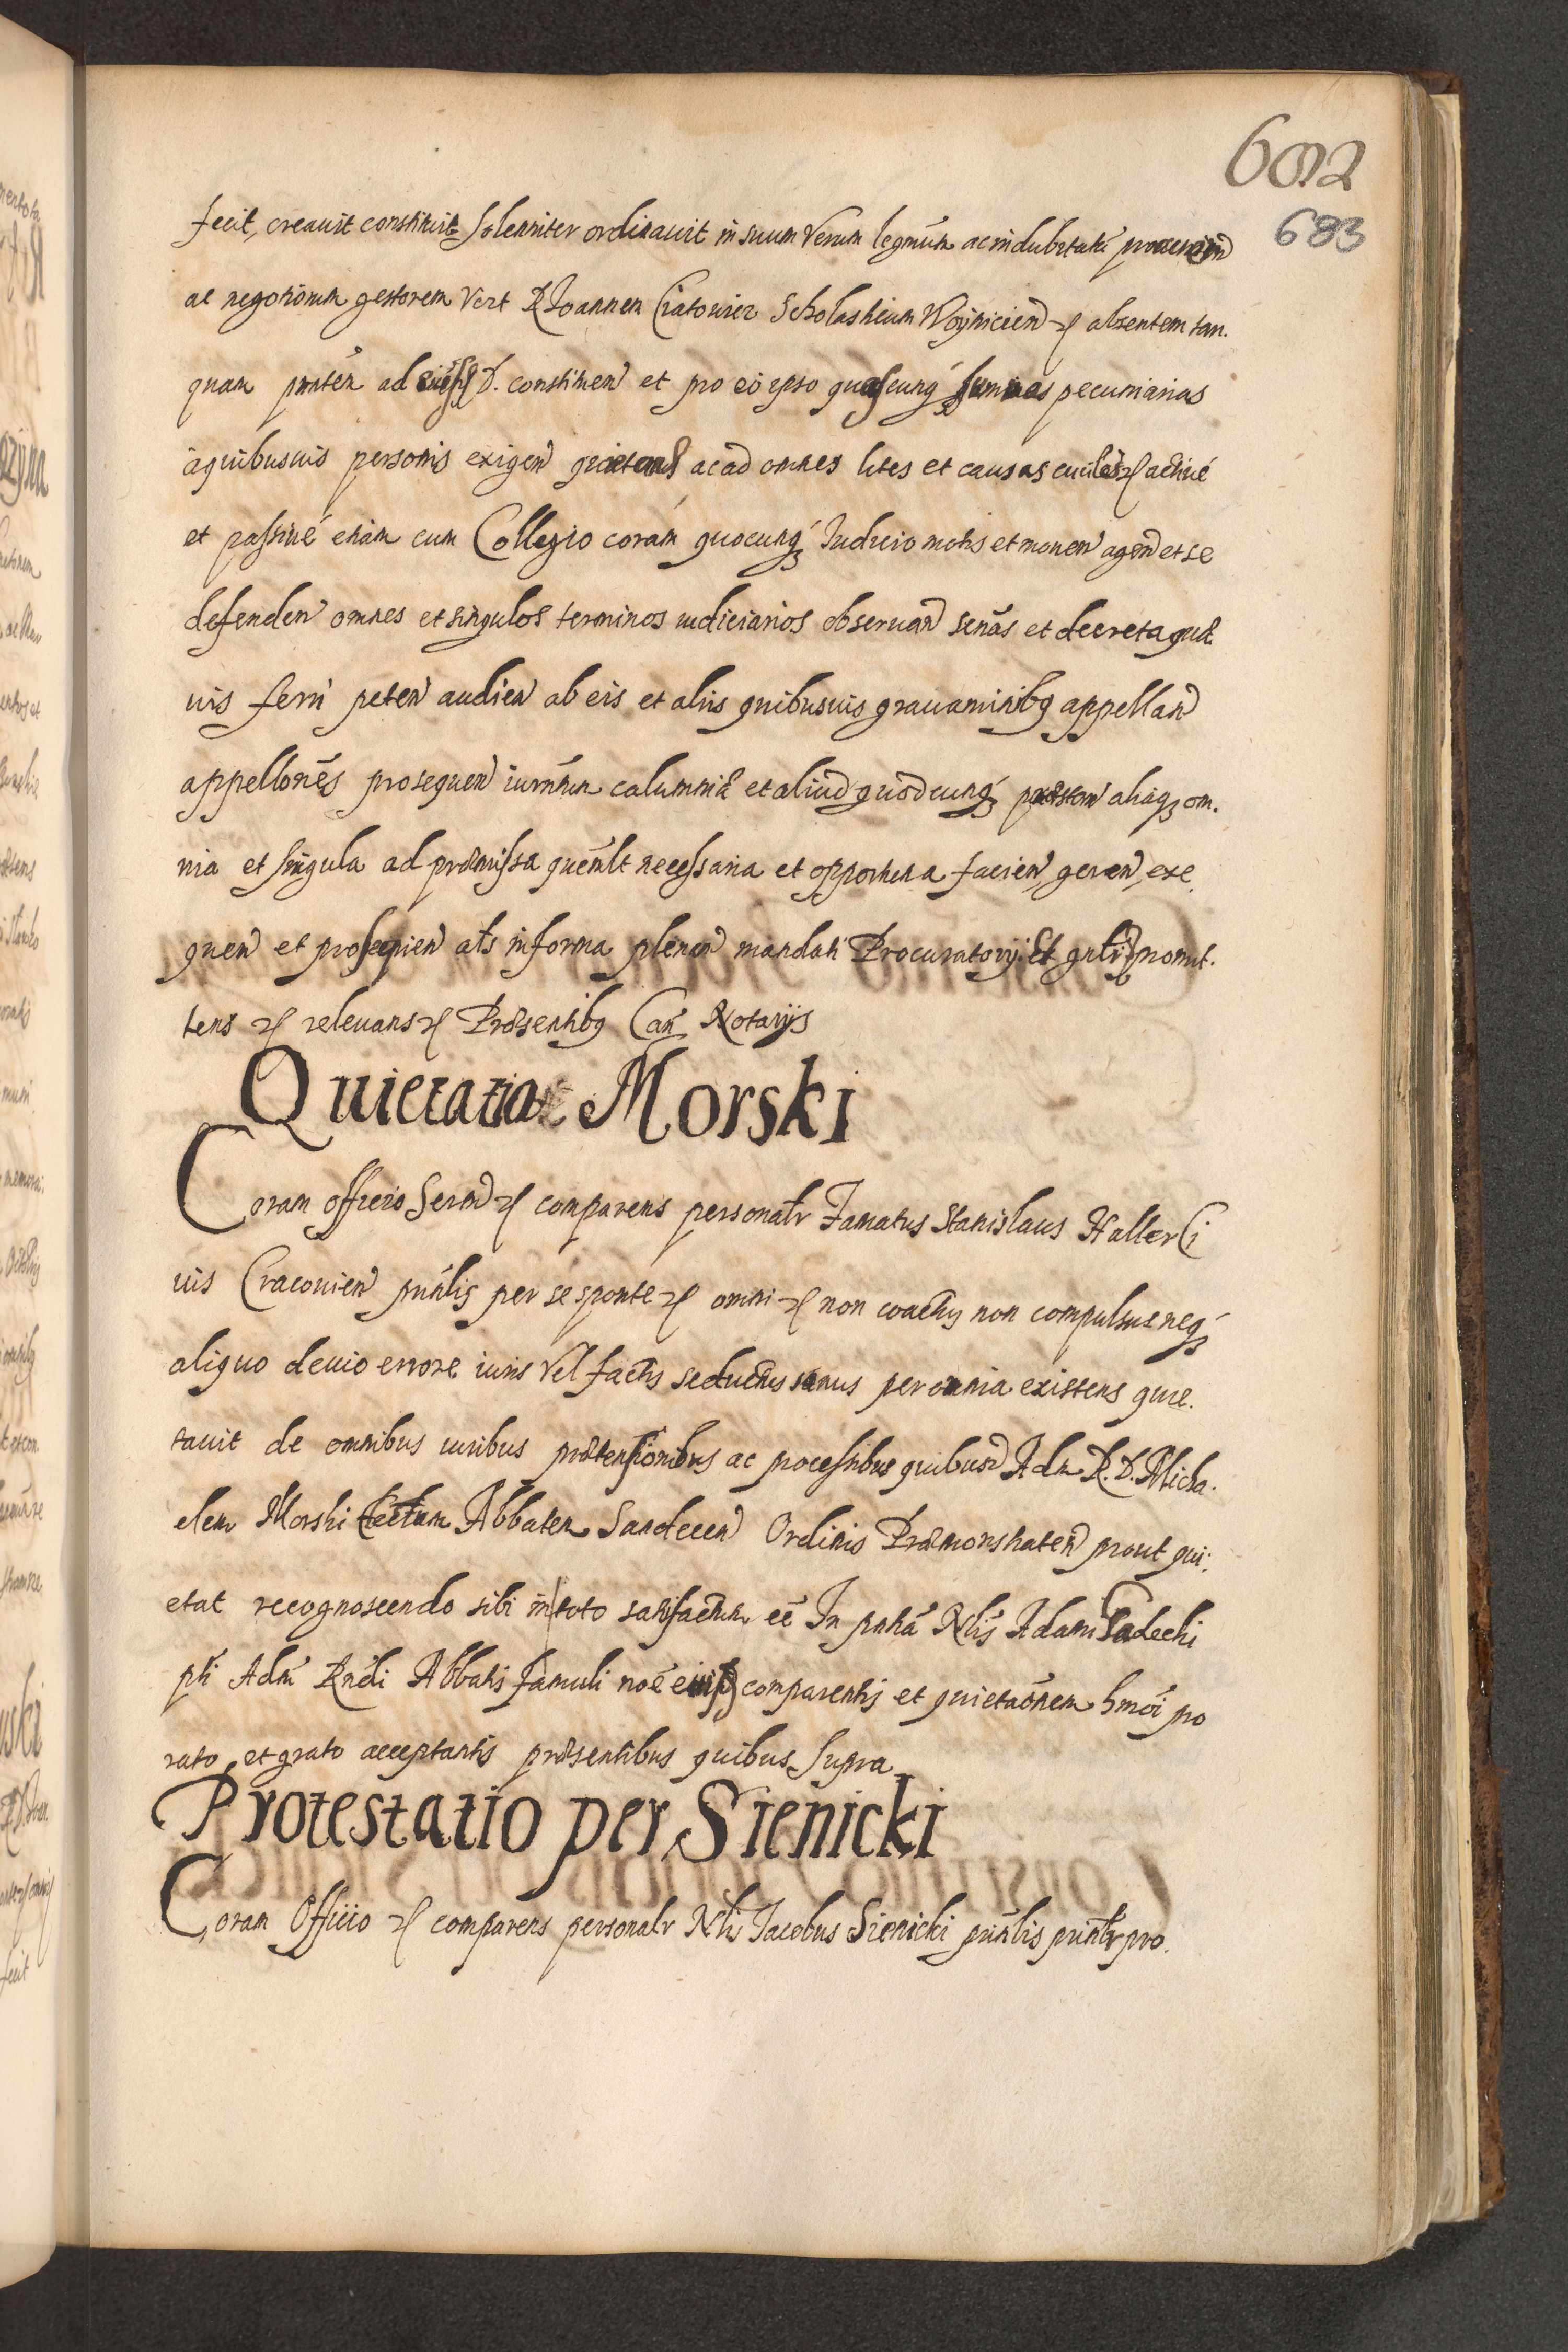 602
683
fecit, creauit constituit solenniter ordinauit in suum verum legmum ac indubitatu procurem
ac negotiorum gestorem Vert R Joannem Ciatowicz Scholasticum Woyniciens absentem tan.
quam pntem ad D. constituen et pro eo ipso quascunq summas pecuniarias
a quibusuis personis exigen quietand ac ad omnes lites et causas ciuiles actiue
et passiue etiam cum Collegio coram quocunq Judicio motis et mouen agen et se
defenden omnes et singulos terminos iudiciarios obseruan senas et decreta quæ
uis ferri peten audien ab eis et aliis quibusuis grauaminibq appellan
appellones prosequen iurmum calumniæ et aliud quodcunq præstan aliaq om.
nia et singula ad præmissa quemlt necessaria et opportuna facien, geren, exe
quen et als in forma pleniss mandati Procuratorij Et promit.
tens relevans Præsentibq Can Notarijs
Quietatio Morski
Coram officio Seren comparens personalr Famatus Stanislaus Haller Ci
uis Cracouien pntalis per se sponte omni non coactus non compulsus neq
aliquo deuio errore iuris vel facti seductus sanus per omnia existens quie.
tauit de omnibus iuribus prætensionibus ac processibus quibusd Adm R. D. Micha.
elem Morski Electum Abbatem Sandecen Ordinis Præmonstraten prout qui.
etat recognoscendo sibi in toto satisfactum ee In pntia Nlis Adami Sadecki
pti Adm Rndi Abbatis famuli noe comparentis et quietaonem hmoi pro
rato et grato acceptantis præsentibus quibus supra
Protestatio per Sienicki
Coram Officio comparens personalr Nlis Jacobus Sienicki pntalis pntr pro.